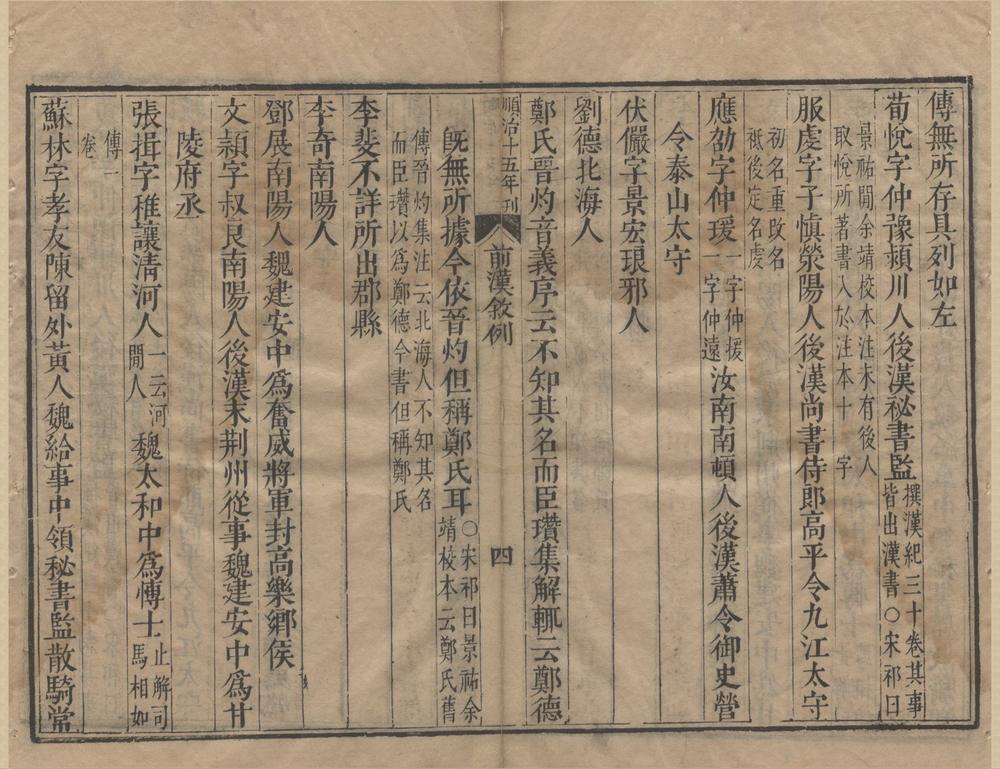 傳無所存具列如左
荀悅字仲豫潁川人後漢秘書監撰漢紀三十卷其事皆出漢書○宋祁曰
景祐閒余靖校本注末有後人取悅所著書入於注本十字
服虔字子慎滎陽人後漢尚書侍郎高平令九江太守
初名重改名祇後定名虔
應劭字仲瑗一字仲援一字仲遠汝南南頓人後漢蕭令御史營
令泰山太守
伏儼字景宏琅邪人
劉德北海人
鄭氏晉灼音義序云不知其名而臣瓚集解輒云鄭德
順治十五年刊
前漢敘例
四
旣無所據今依晉灼但稱鄭氏耳○宋祁曰景祐余靖校本云鄭氏舊
傳晉灼集注云北海人不知其名而臣瓚以爲鄭德今書但稱鄭氏
李斐不詳所出郡縣
李奇南陽人
鄧展南陽人魏建安中爲奮威將軍封高樂鄉侯
文潁字叔良南陽人後漢末荆州從事魏建安中爲甘
陵府丞
張揖字稚讓淸河人一云河閒人魏太和中爲博士止解司馬相如
傳一卷
蘇林字孝友陳留外黃人魏給事中領秘書監散騎常